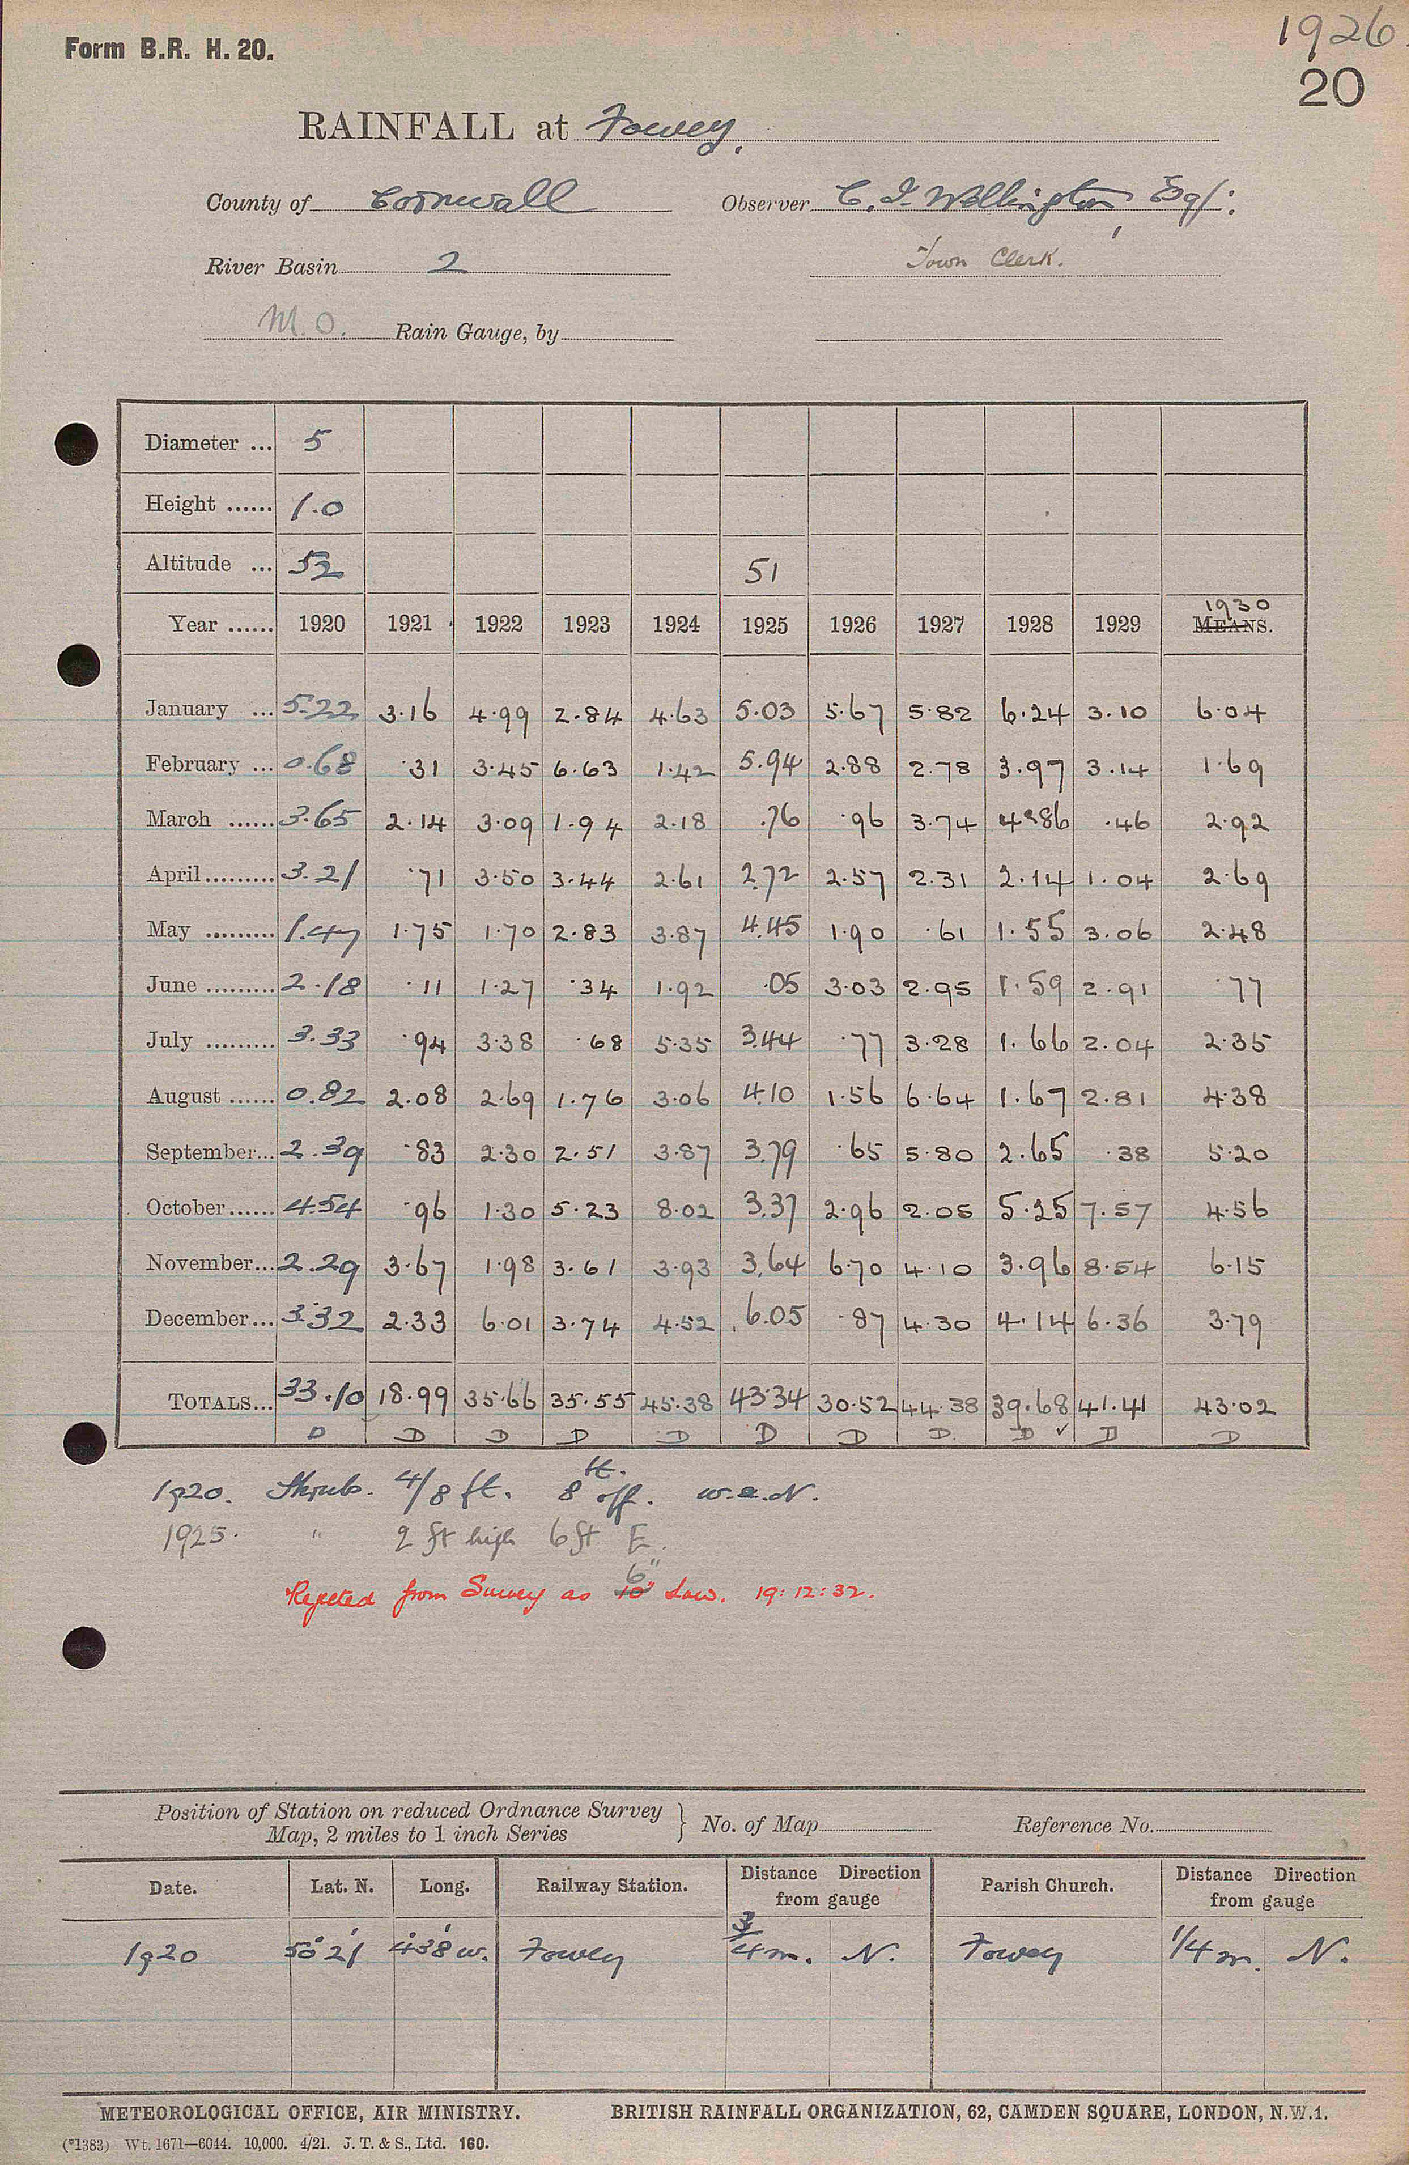 1926
Form B.R. H. 20.
20
RAINFALL at Fowey.
County of Cornwall Observer C. F. Wellington, Esqr:
River Basin 2 Town Clerk.
M.O. Rain Gauge, by
Diameter ... 5
Height ...... 1.0
Altitude ... 52 51
Year ...... 1920 1921 1922 1923 1924 1925 1926 1927 1928 1929 1930 MEANS.
January ... 5.22 3.16 4.99 2.84 4.63 5.03 5.67 5.82 6.24 3.10 6.04
February ... 0.68 .31 3.45 6.63 1.42 5.94 2.88 2.78 3.97 3.14 1.69
March ...... 3.65 2.14 3.09 1.94 2.18 .76 .96 3.74 4.86 .46 2.92
April ......... 3.21 .71 3.50 3.44 2.61 2.72 2.57 2.31 2.14 1.04 2.69
May ......... 1.47 1.75 1.70 2.83 3.87 4.45 1.90 .61 1.55 3.06 2.48
June ......... 2.18 .11 1.27 .34 1.92 .05 3.03 2.95 1.59 2.91 .77
July ......... 3.33 .94 3.38 .68 5.35 3.44 .77 3.28 1.66 2.04 2.35
August ...... 0.82 2.08 2.69 1.76 3.06 4.10 1.56 6.64 1.67 2.81 4.38
September... 2.39 .83 2.30 2.51 3.87 3.79 .65 5.80 2.65 .38 5.20
October...... 4.54 .96 1.30 5.23 8.02 3.37 2.96 2.05 5.25 7.57 4.56
November... 2.29 3.67 1.98 3.61 3.93 3.64 6.70 4.10 3.96 8.54 6.15
December... 3.32 2.33 6.01 3.74 4.52 6.05 .87 4.30 4.14 6.36 3.79
TOTALS... 33.10 18.99 35.66 35.55 45.38 43.34 30.52 44.38 39.68 41.41 43.02
D D D D D D D D D ✓ D D
1920. Shrub. 4/8 ft. 8 ft. off. w.a.N.
1925. " 2 ft high 6 ft E.
Rejected from Survey as 10" 6" low. 19:12:32.
Position of Station on reduced Ordnance Survey
Map, 2 miles to 1 inch Series } No. of Map Reference No.
Date. Lat. N. Long. Railway Station. Distance from gauge Direction Parish Church. Distance from gauge Direction
1920 50° 21' 4° 38' w. Fowey 3/4 m. N. Fowey 1/4 m. N.
METEOROLOGICAL OFFICE, AIR MINISTRY. BRITISH RAINFALL ORGANIZATION, 62, CAMDEN SQUARE, LONDON, N.W.1.
(*1383) Wt. 1671—6044. 10,000. 4/21. J. T. & S., Ltd. 160.